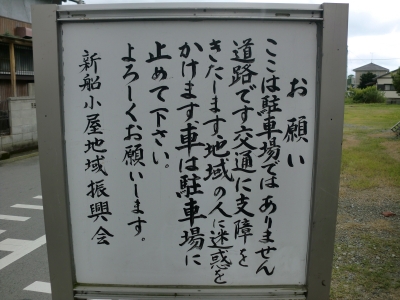 お願い
ここは駐車場ではありません
道路です交通に支障を
きたします。地域の人に迷惑を
かけます。車は駐車場に
止めて下さい。
よろしくお願いします。
新船小屋地域振興会